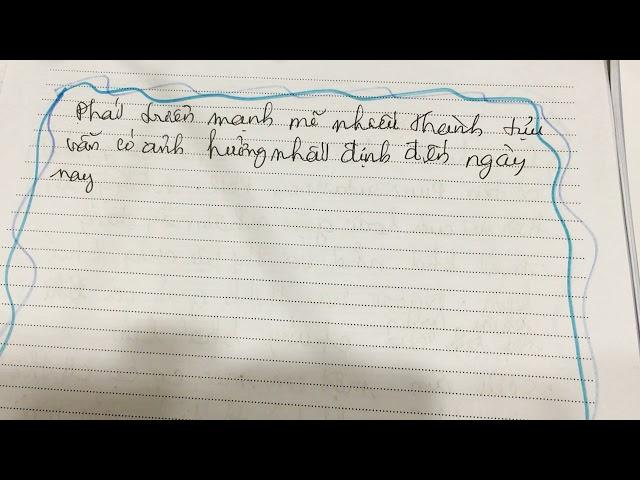 Phát triển mạnh mẽ nhiều thành tựu
vẫn có ảnh hưởng nhất định đến ngày
nay